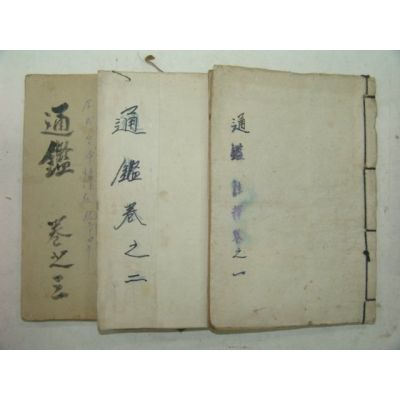 通鑑 註釋卷之一
通鑑卷之二
通鑑 卷之三